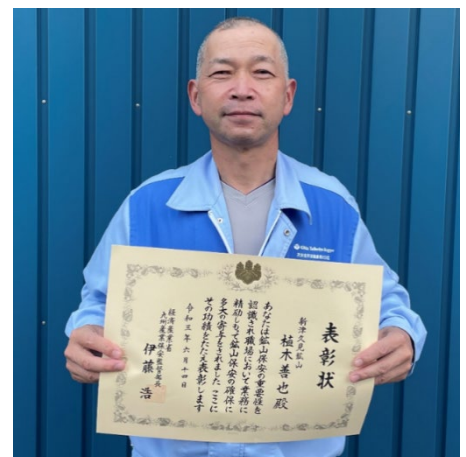 表彰状
新津久見鉱山
植木善也殿
あなたは鉱山保安の重要性を
認識され職場において業務に
精励しもって鉱山保安の確保に
多大の寄与をされました ここに
その功績をたたえ表彰します
令和三年六月十四日
経済産業省
九州産業保安監督部長
伊藤浩